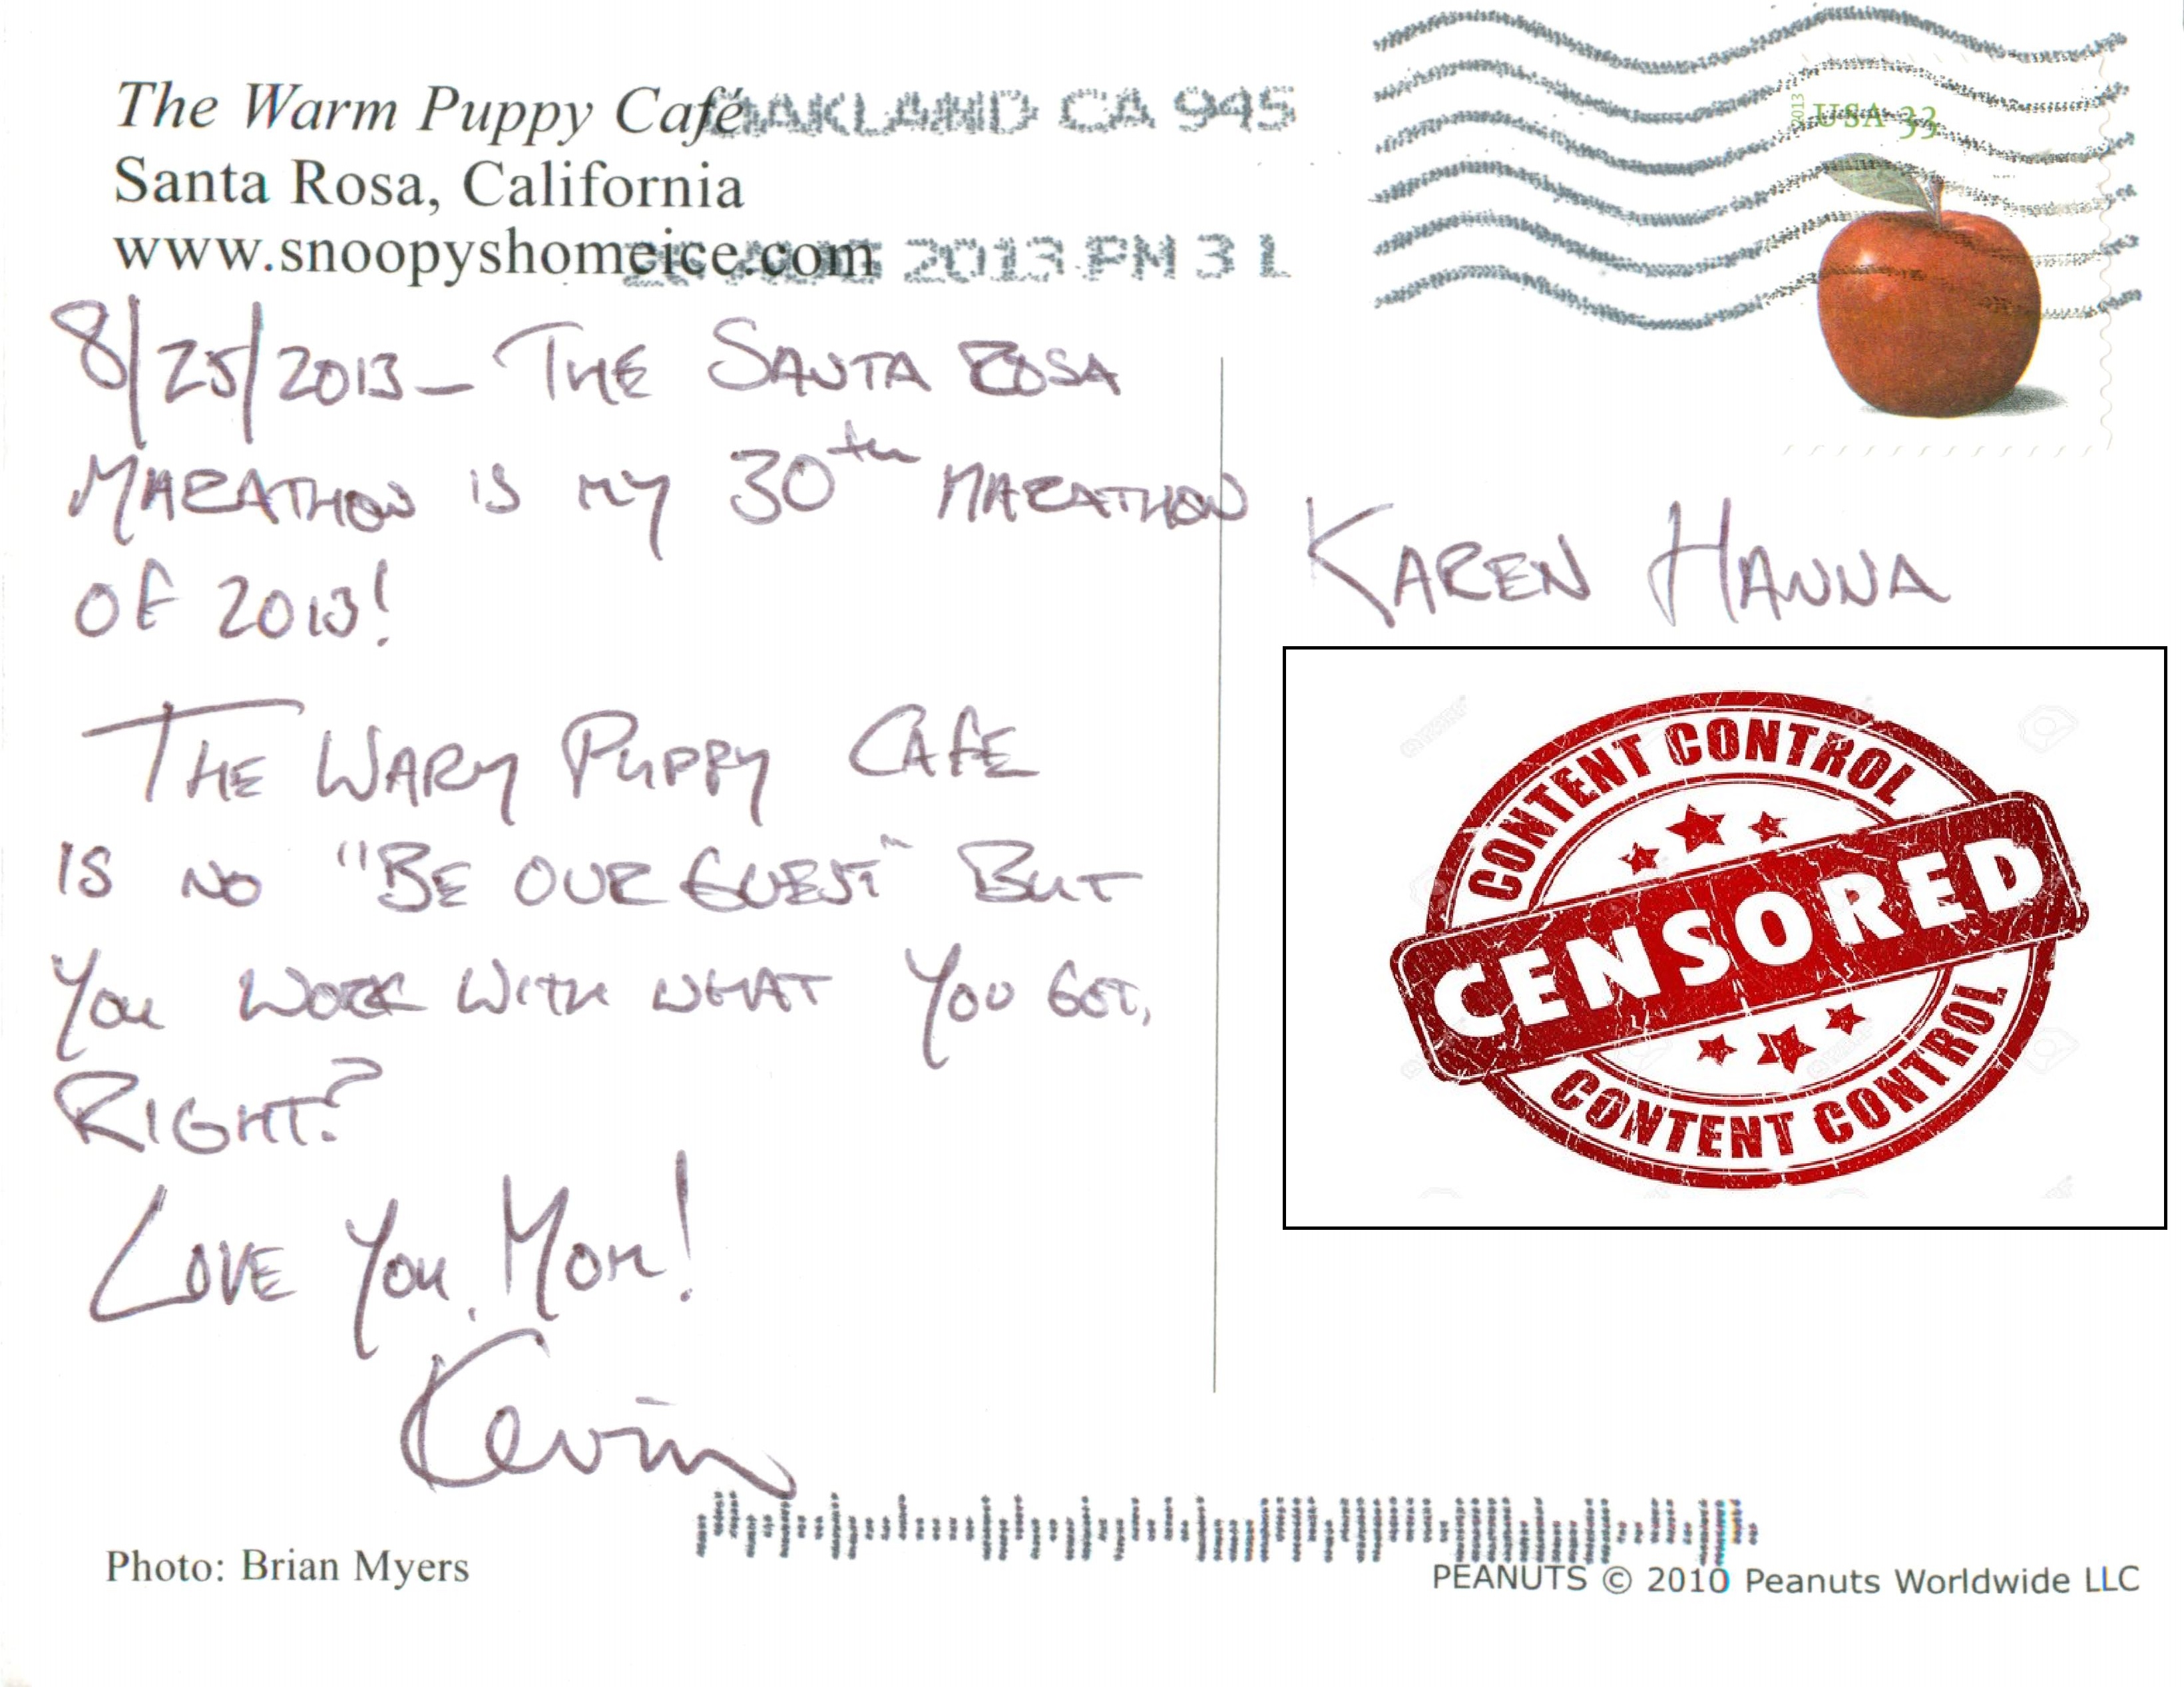 The Warm Puppy Café
OAKLAND CA 945
Santa Rosa, California
www.snoopyshomeice.com
2013 PM 3 L
2013
USA 33
8/25/2013 - THE SANTA ROSA
MARATHON IS MY 30th MARATHON
OF 2013!
THE WARM PUPPY CAFE
IS NO "BE OUR GUEST" BUT
YOU WORK WITH WHAT YOU GOT,
RIGHT?
LOVE YOU, MOM!
Kevin
KAREN HANNA
CONTENT CONTROL
CENSORED
CONTENT CONTROL
Photo: Brian Myers
PEANUTS © 2010 Peanuts Worldwide LLC